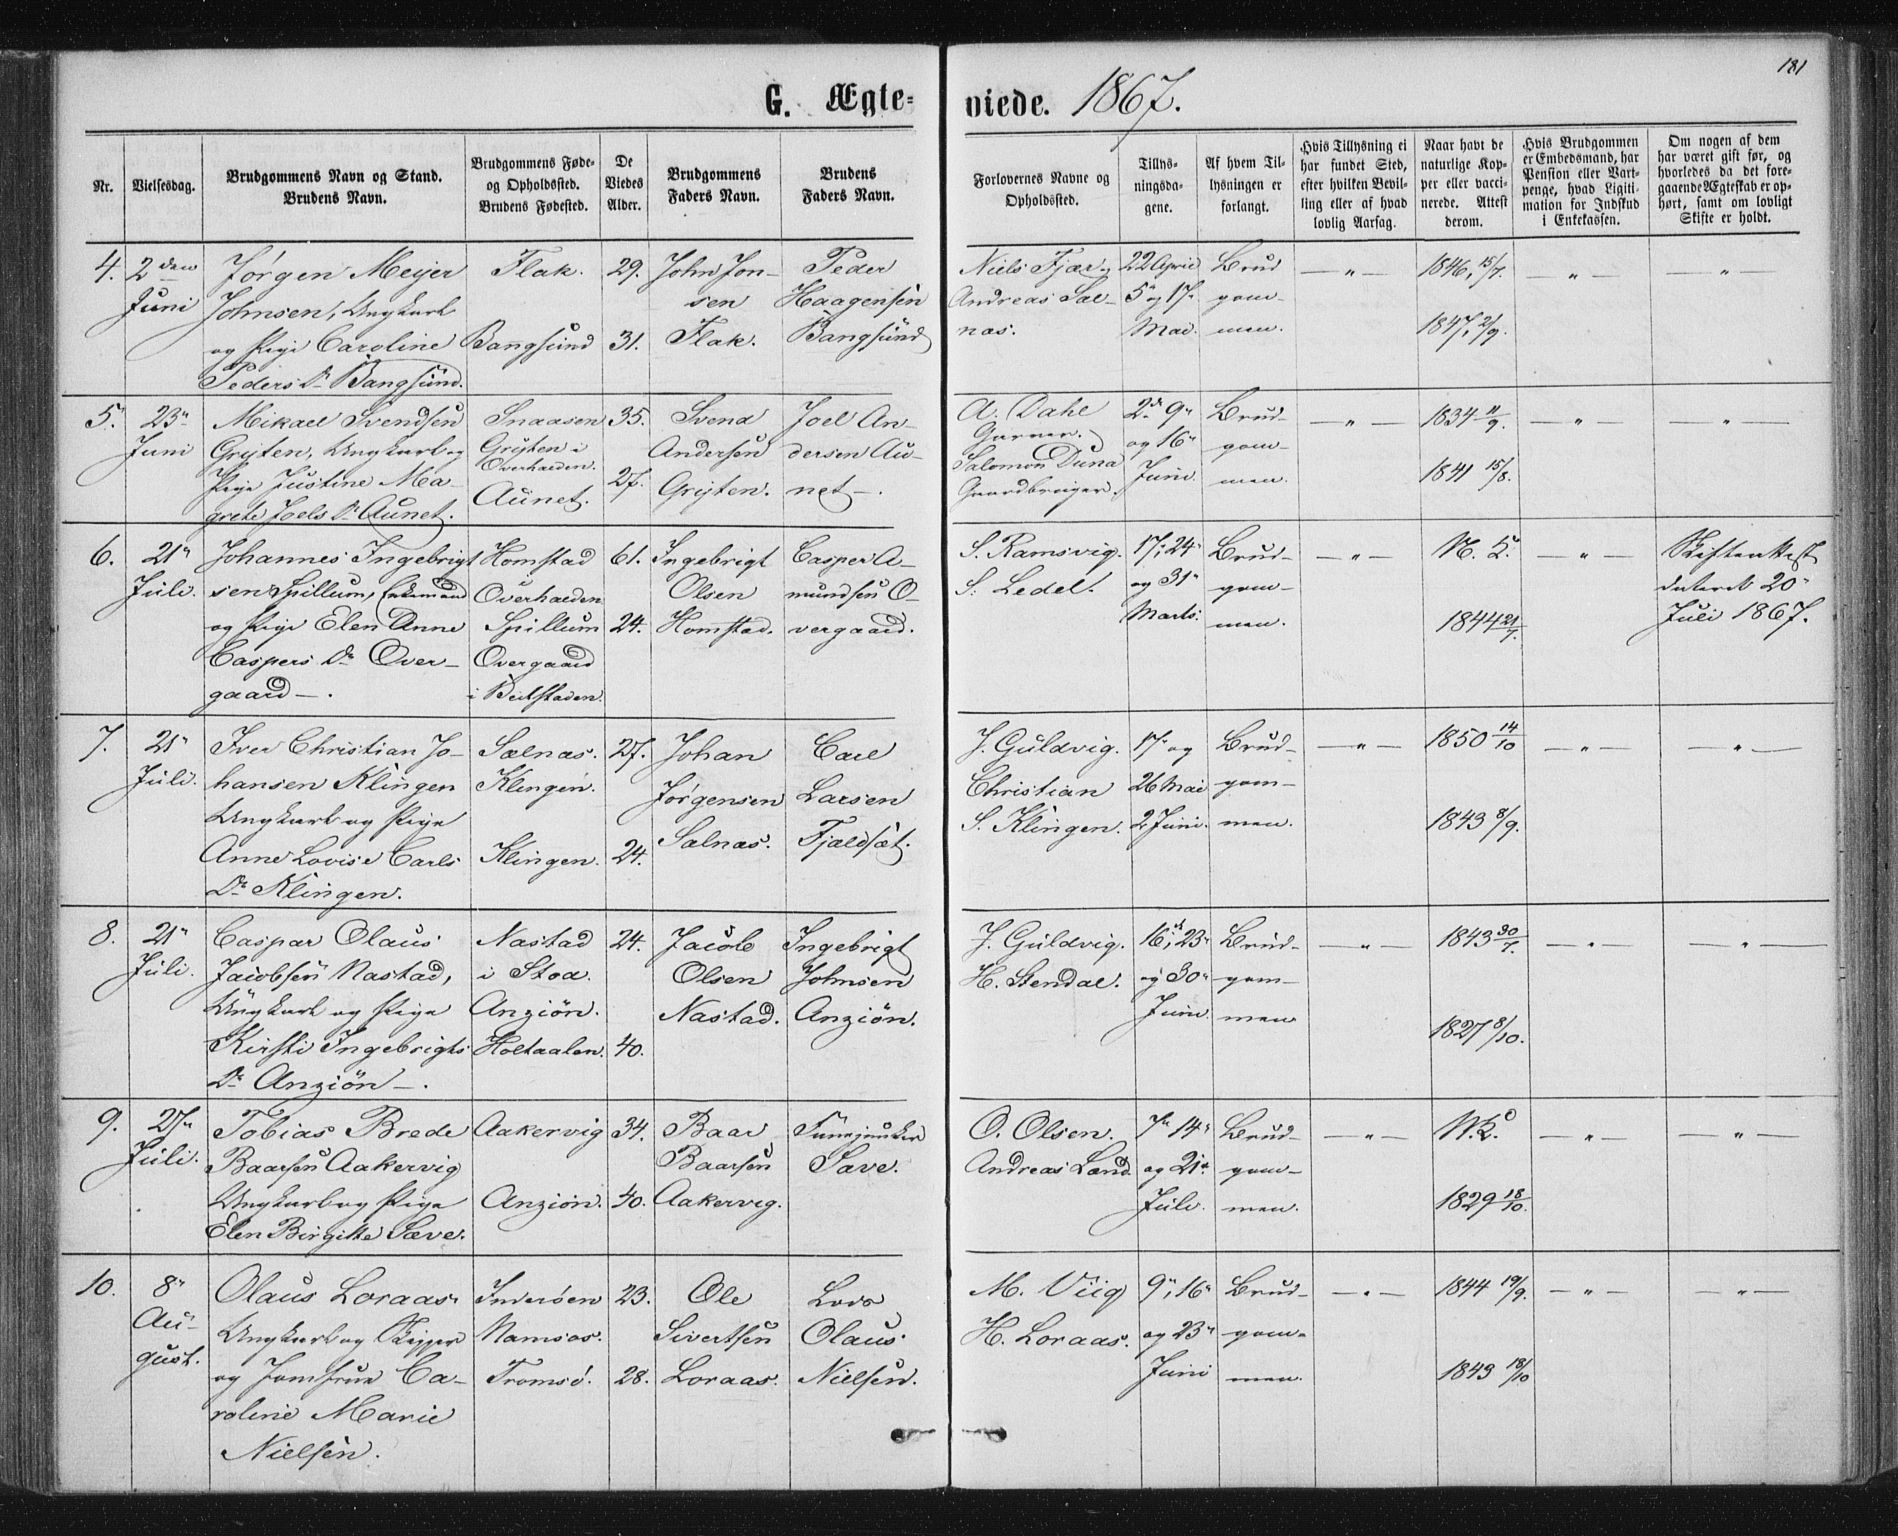 181
G. Ægte- viede. 1867.
Nr. | Vielsesdag. | Brudgommens Navn og Stand. Brudens Navn. | Brudgommens Føde- og Opholdssted. Brudens Fødested. | De Viedes Alder. | Brudgommens Faders Navn. | Brudens Faders Navn. | Forlovernes Navne og Opholdssted. | Tillys- ningsda- gene. | Af hvem Til- lysningen er forlangt. | Hvis Tillysning ei har fundet Sted, efter hvilken Bevil- ling eller af hvad lovlig Aarsag. | Naar havt de naturlige Kop- per eller vacci- nerede. Attest derom. | Hvis Brudgommen er Embedsmand, har Pension eller Vart- penge, hvad Ligiti- mation for Indskud i Enkekassen. | Om nogen af dem har været gift før, og hvorledes da det fore- gaaende Ægteskab er op- hørt, samt om lovligt Skifte er holdt.
4. | 2den Juni | Jørgen Meyer Johnsen, Ungkarl og Pige Caroline Peders Dr Bangsund. | Flak. Bangsund | 29. 31. | John Jon- sen Flak. | Peder Haagensen Bangsund | Niels Fjær. Andreas Sæl- nas. | 22 April 5" og 17" Mai. | Brud- gom- men. | — " — | 1846, 15/7. 1847, 2/9. | — " — | — " —
5. | 23" Juni | Mikael Svendsen Grijten, Ungkarl og Pige Justine Ma- grete Joels Dr Aunet. | Snaasen Grijten i Overhalden. Aunet. | 35. 27. | Svend Andersen Grijten. | Joel An- dersen Au- net —. | A. Dahl Garver. Salomon Duna Gaardbruger. | 2d 9" og 16" Juni. | Brud- gom- men. | — " — | 1834 11/9. 1841 15/8. | — " — | — " —
6. | 21" Juli. | Johannes Ingebrigt sen Spillum, Enkemand og Pige Elen Anne Caspers Dr Over- gaard —. | Homstad Overhalden Spillum Overgaard i Beitstaden. | 61. 24. | Ingebrigt Olsen Homstad. | Casper A- mundsen O- vergaard. | S. Ramsvig. S. Ledel. | 17, 24" og 31" Marts. | Brud- gom- men. | — " — | N. K. 1844 21/7. | — " — | Skifteattest dateret 20" Juli 1867.
7. | 21" Juli. | Iver Christian Jo- hansen Klingen Ungkarl og Pige Anne Lovise Carls Dr Klingen. | Sælnas. Klingen. Klingen. | 27. 24. | Johan Jørgensen Salnas. | Carl Larsen Fjeldsæt. | J. Guldvig. Christian S. Klingen. | 17" og 26 Mai 2 Juni. | Brud- gom- men. | — " — | 1850 14/10 1843 8/9. | — " — | — " —
8. | 21" Juli. | Caspar Olaus Jacobsen Nastad, Ungkarl og Pige Kirsti Ingebrigts Dr Anziön —. | Nastad i Stoa. Anziön. Holtaalen. | 24. 40. | Jacob Olsen Nastad. | Ingebrigt Johnsen Anziön. | J. Guldvig. H. Stendal. | 16, 23" og 30" Juni. | Brud- gom- men | — " — | 1843 30/7. 1827 8/10. | — " — | — " —
9. | 27" Juli. | Tobias Brede Baarsen Aakervig Ungkarl og Pige Elen Birgitte Sæve. | Aakervig Anziön. | 34. 40. | Baar Baarsen Aakervig. | Save. | O. Olsen. Andreas Land | 7" 14" og 21" Juli. | Brud- gom- men. | — " — | N. K. 1829 18/10. | — " — | — " —
10. | 8" Au- gust. | Olaus Loraas. Ungkarl og Skipper og Jomfrue Ca- roline Marie Nielsen. | Inderøen Namsos. Tromsö. | 23. 28. | Ole Sivertsen Loraas. | Lods Olaus Nielsen. | M. Viig H. Loraas. | 9", 16" og 23" Juni | Brud- gom- men. | — " — | 1844 19/9. 1843 18/10 | — " — | — " —